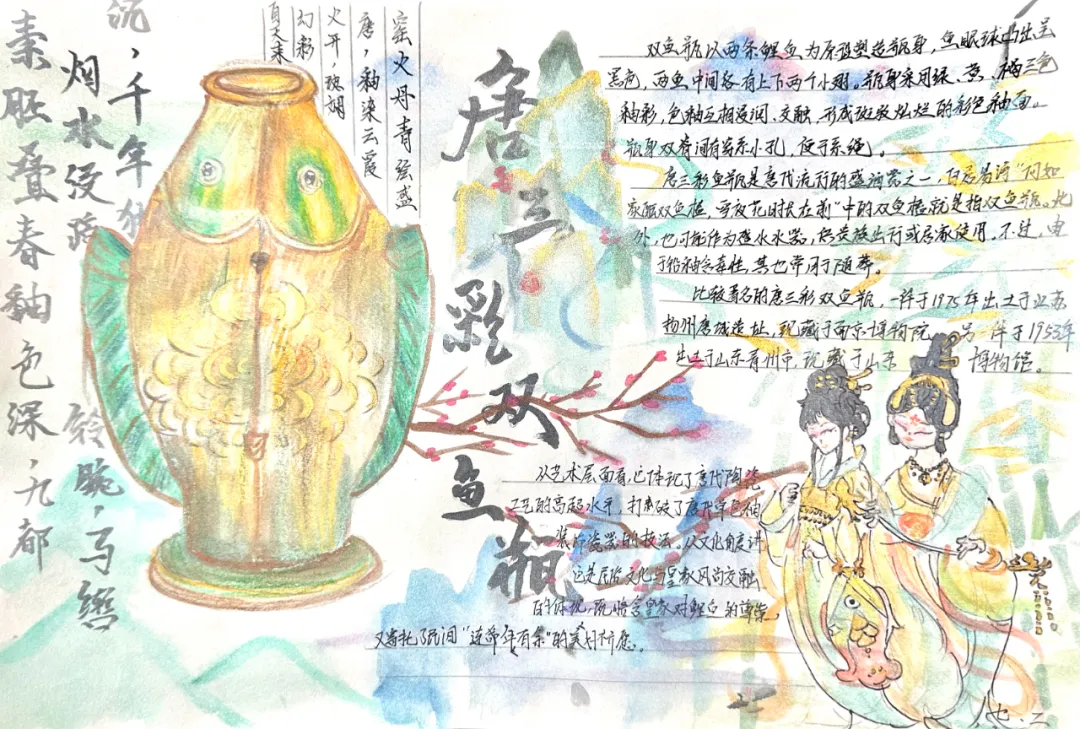 唐三彩双鱼瓶
素胚叠春釉色深,九都
烟水浸
铃
,千年
沉
窑火丹青弦盛
唐,釉染云霞
火开,
幻彩
双鱼瓶以两条鲤鱼为原型塑造瓶身,鱼眼球凸出呈
黑色,两鱼中间各有上下两个小翅。瓶身采用绿、黄、褐三色
釉彩,色釉互相浸润、交融,形成斑驳灿烂的彩色釉面。
瓶身双脊间有穿系小孔,便于系绳。
唐三彩鱼瓶是唐代流行的盛酒器之一,白居易诗“何如
家酝双鱼榼,雪夜花时长在前”中的双鱼榼就是指双鱼瓶。此
外,也可能作为盛水水器,供贵族出行或居家使用。不过,由
于铅釉含毒性,其也常用于随葬。
比较著名的唐三彩双鱼瓶,一件于1975年出土于江苏
扬州唐城遗址,现藏于南京博物院,另一件于1953年
出土于山东青州市,现藏于山东 博物馆。
从艺术层面看,它体现了唐代陶瓷
工艺的高超水平,打破了唐代单色釉
装饰瓷器的技法。从文化角度讲
这是居
的体现,既暗含皇家对鲤鱼的
又寄托了民间“连年有余”的美好祈愿。
七.二